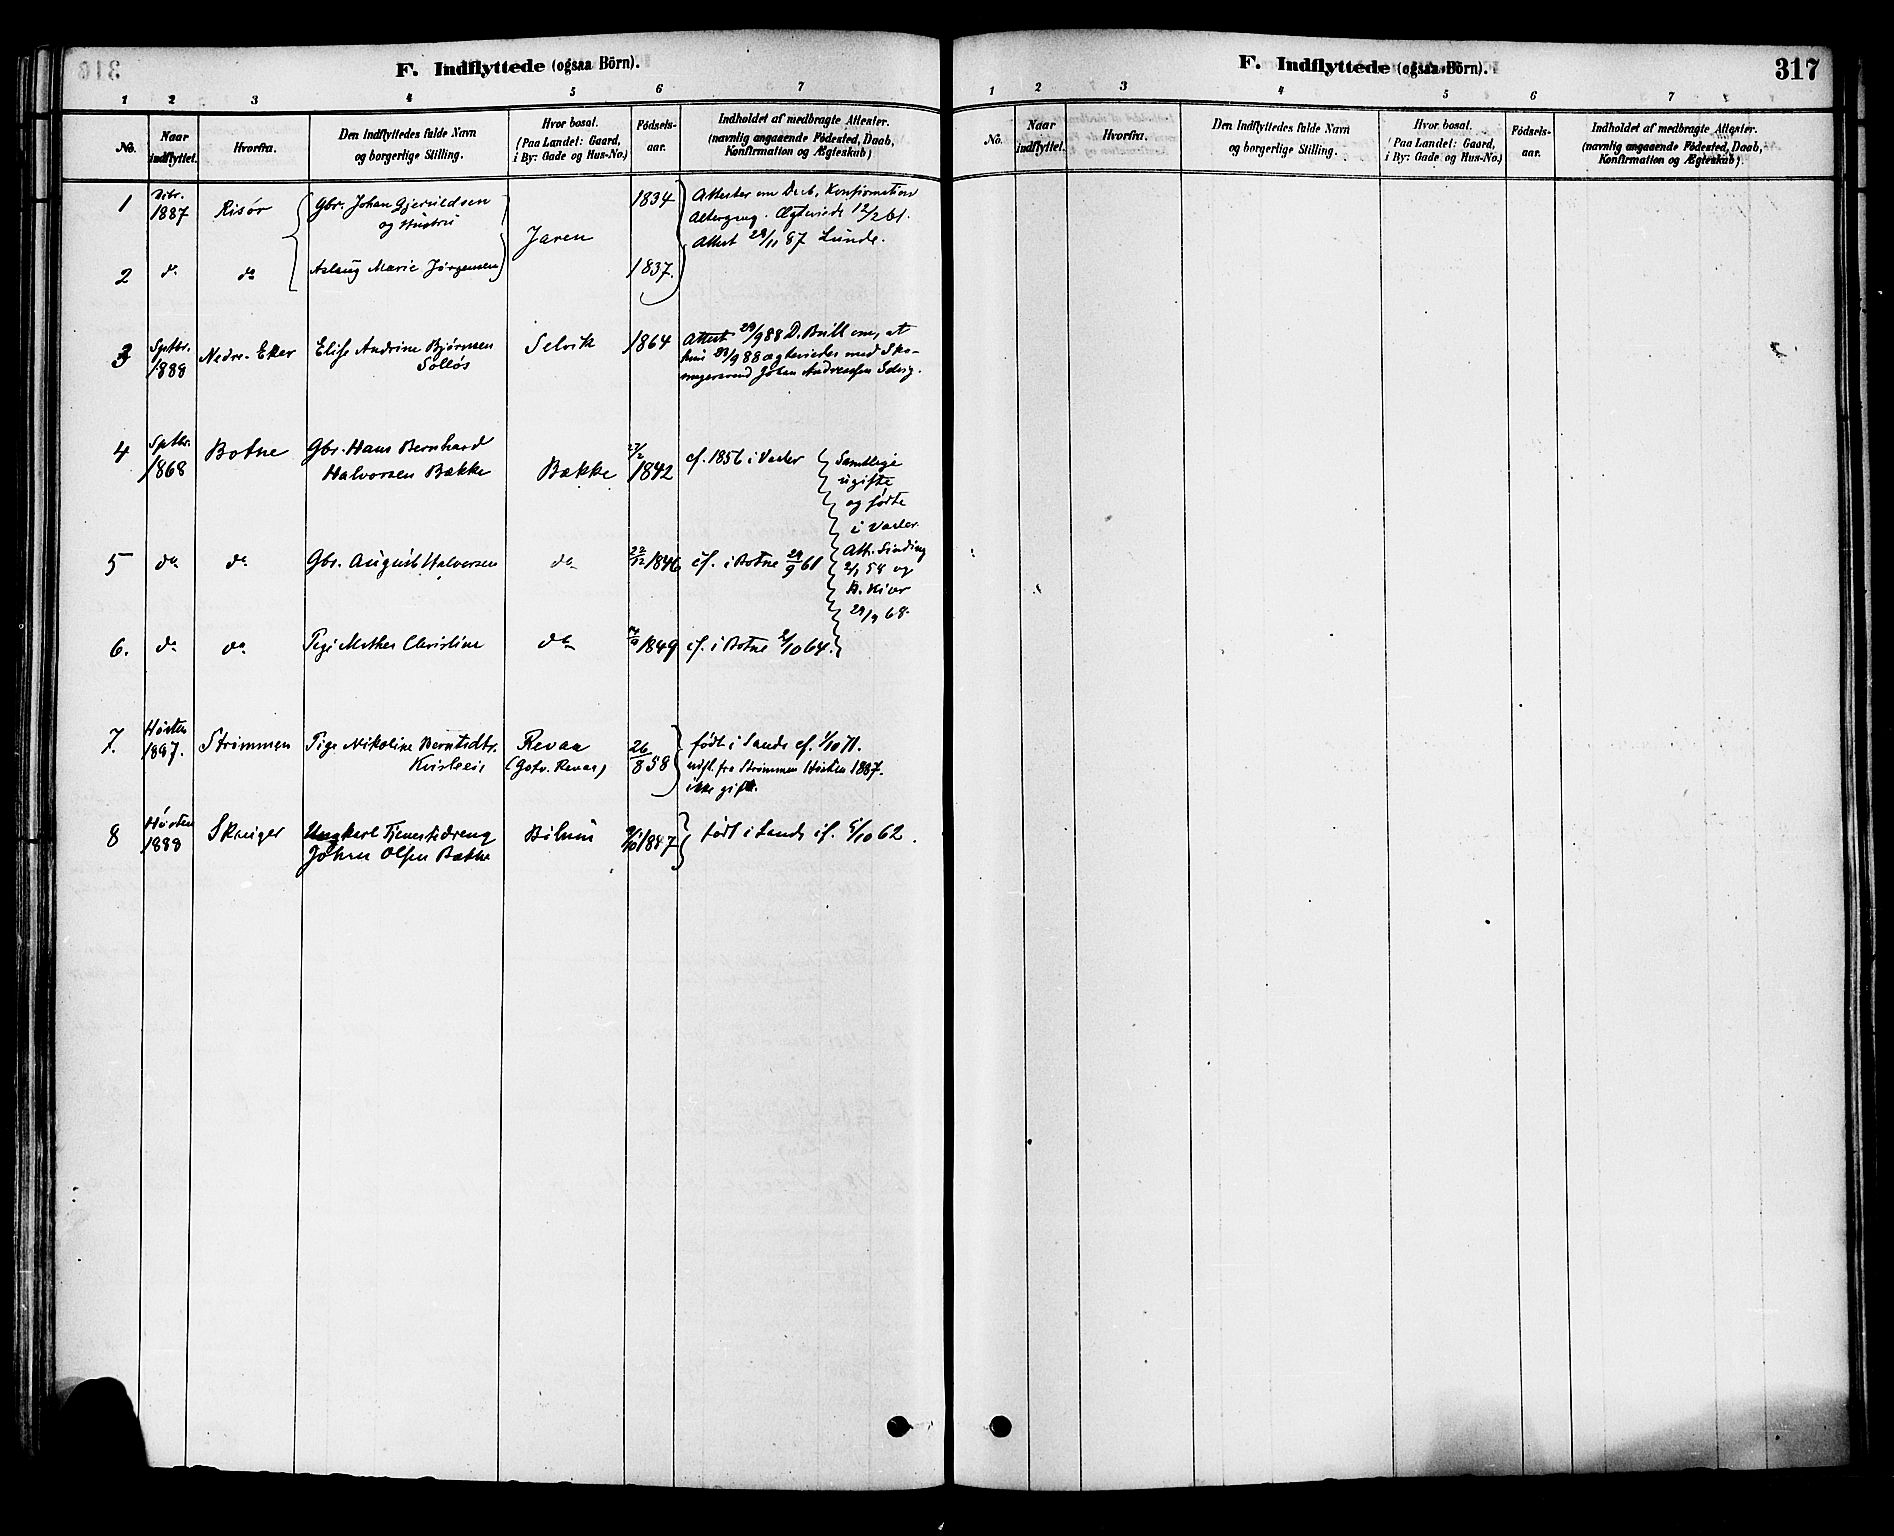 F. Indflyttede (ogsaa Börn).
1 2 3 4 5 6 7
No.
Naar indflyttet.
Hvorfra.
Den Indflyttedes fulde Navn
og borgerlige Stilling.
Hvor bosat.
(Paa Landet: Gaard,
i By: Gade og Hus-No.)
Födsels-
aar.
Indholdet af medbragte Attester.
(navnlig angaaende Födested, Daab,
Konfirmation og Ægteskab)
1 1887 Risör Gbr. Johan Gjeruldsen
og Hustru
Jaren 1834
Attester om Daab, Konfirmation
Altergang. Ægteviede 12/2 61.
Attest 28/11 87 Lunde.
2 do do Aslaug Marie Jørgensen 1837.
3 Sptbr. 1888 Nedre-Eker Elise Andrine Bjørnsen
Solløs
Selvik 1864
Attest 29/9 88 D. Brill om, at
hun 23/9 88 ægteviedes med Sko-
magersvend Johan Andreassen
4 Sptbr. 1868 Botne Gbr. Hans Bernhard
Halvorsen Bække
Bække 27/2 1842
cf. 1856 i Vaaler
Samtlige
ugifte
og fødte
i Vaaler.
Att. Sinding
2/1 58 og
29/9 68.
5 do do Gbr. August Halvorsen do 22/12 1846 cf. i Botne 29/9 61
6. do do Pige Mathea Christine do 1849 cf. i Botne 2/10 64.
7. Høsten 1887. Strømmen Pige Nikoline Berntsdtr.
Revaa
(Østv. Revaa)
26/8 58
født i Sande cf. 1/10 71.
udfl. fra Strømmen Høsten 1887.
ikke gift.
8 Høsten 1888 Skauger Ungkarl Tjenestedreng
Johan Olsen Bække
Bølum 1847
født i Sande cf. 5/10 62.
F. Indflyttede (ogsaa Börn).
317
1 2 3 4 5 6 7
No.
Naar indflyttet.
Hvorfra.
Den Indflyttedes fulde Navn
og borgerlige Stilling.
Hvor bosat.
(Paa Landet: Gaard,
i By: Gade og Hus-No.)
Födsels-
aar.
Indholdet af medbragte Attester.
(navnlig angaaende Födested, Daab,
Konfirmation og Ægteskab).